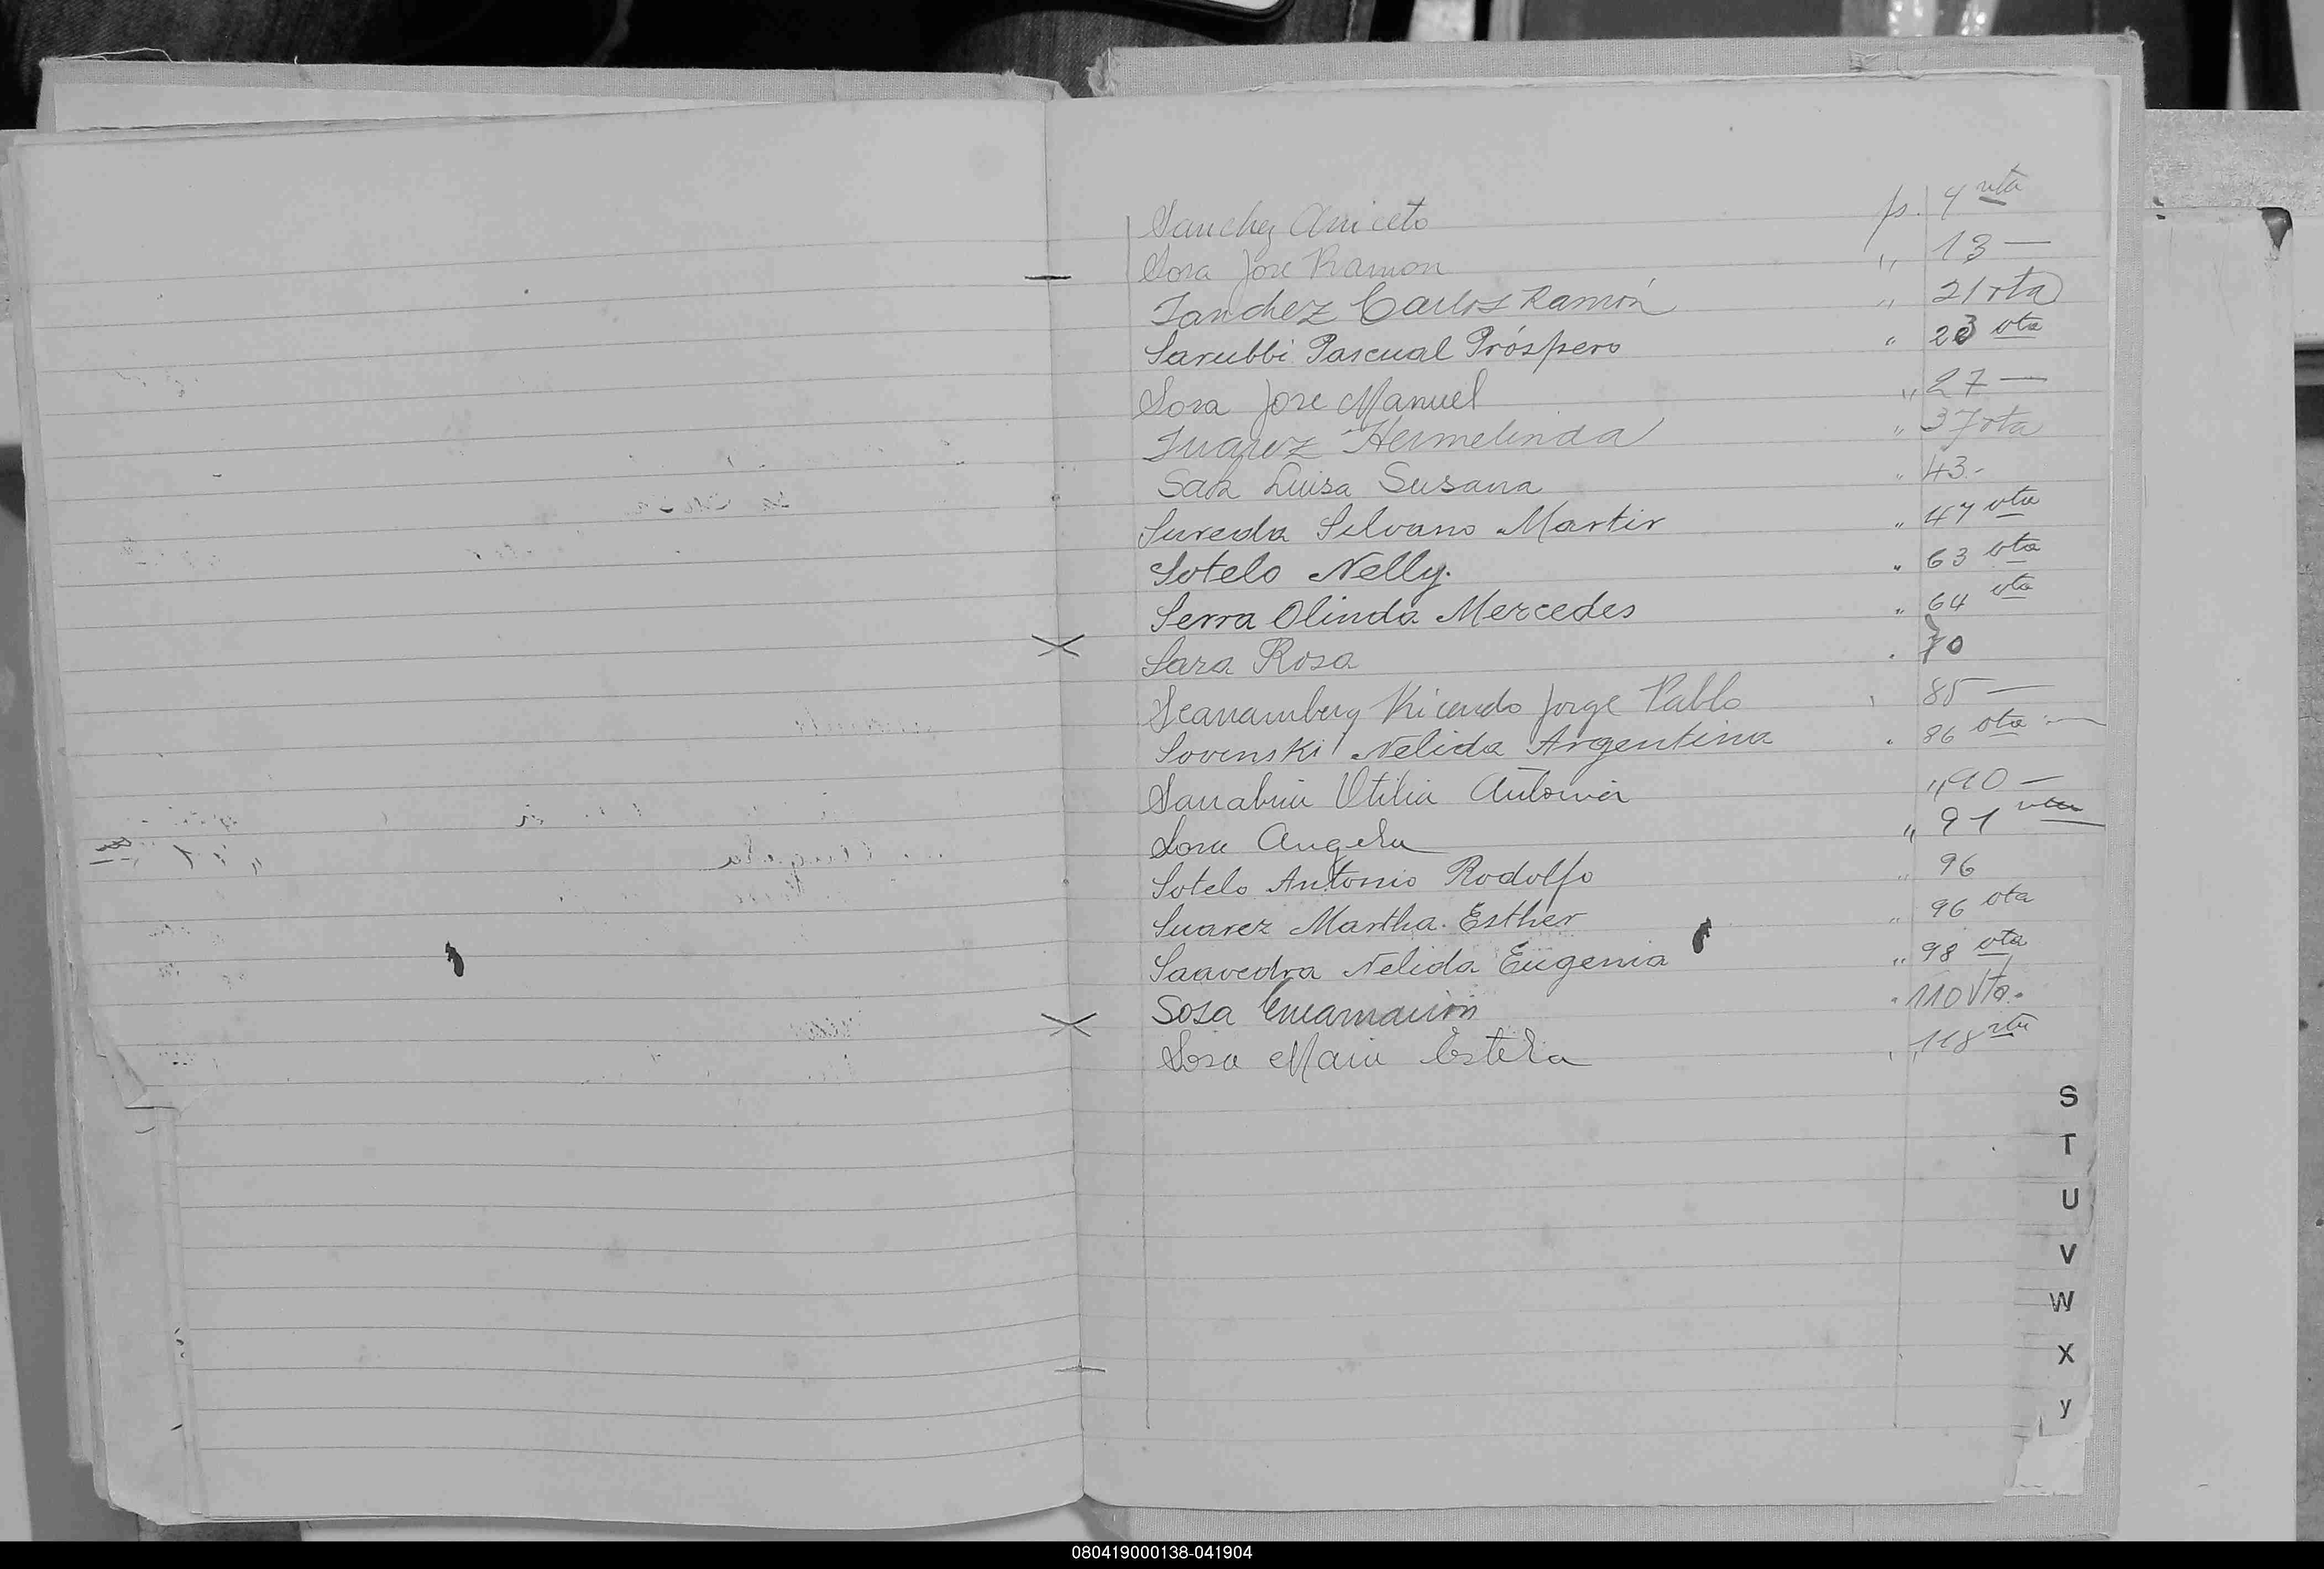 Sanchez Aniceto p. 4 vta
Sosa Jose Ramon " 13 —
Sanchez Carlos Ramón " 21 vta
Sarubbi Pascual Próspero " 23 vta
Sosa Jose Manuel " 27 —
Suarez Hermelinda " 37 vta
Luisa Susana " 43.-
Sureda Silvano Martir " 47 vta
Sotelo Nelly. " 63 vta
Serra Olinda Mercedes " 64 vta
Sara Rosa " 70
Ricardo Jorge Pablo " 85 —
Sovinski Nelida Argentina " 86 vta —
Sanabria Otilia Antonia " 90 —
Sosa Angela " 91 vta
Sotelo Antonio Rodolfo " 96
Suarez Martha Esther " 96 vta
Saavedra Nelida Eugenia " 98 vta
Sosa Encarnación " 110 Vta.
Sosa Maria Estela " 118 vta
S
T
U
V
W
X
y
080419000138-041904